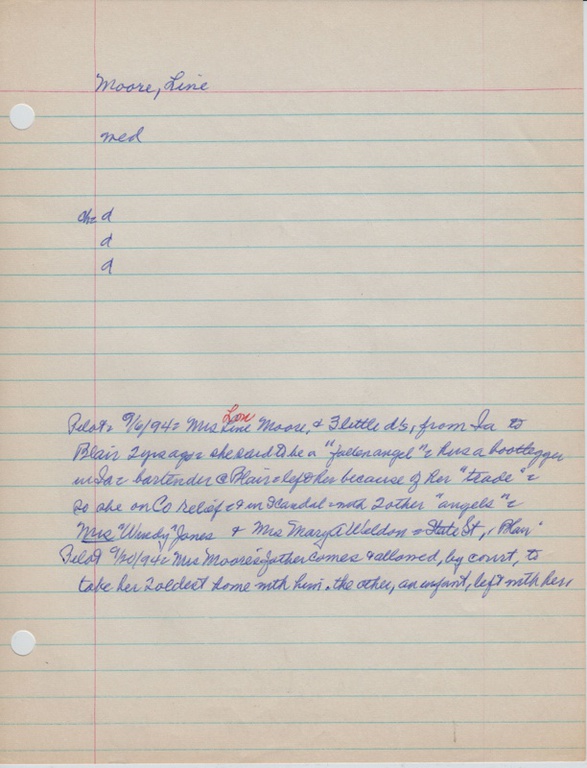 Moore, Line
med
ch= d
d
d
Lou
Pilot= 9/6/94= Mrs Line Moore, & 3 little ds, from Ia to
Blair 2 yrs ago= she said to be a "fallen angel"= hus a bootlegger
in Ia= bartender @ Blair= left her because of her "trade"=
so she on Co relief= & in scandal with 2 other "angels"=
Mrs "Windy" Jones & Mrs Mary A Weldon = State St, Blair
Pilot 9/20/94= Mrs Moore's father comes & allowed, by court, to
take her 2 oldest home with him. the other, an infant, left with her.